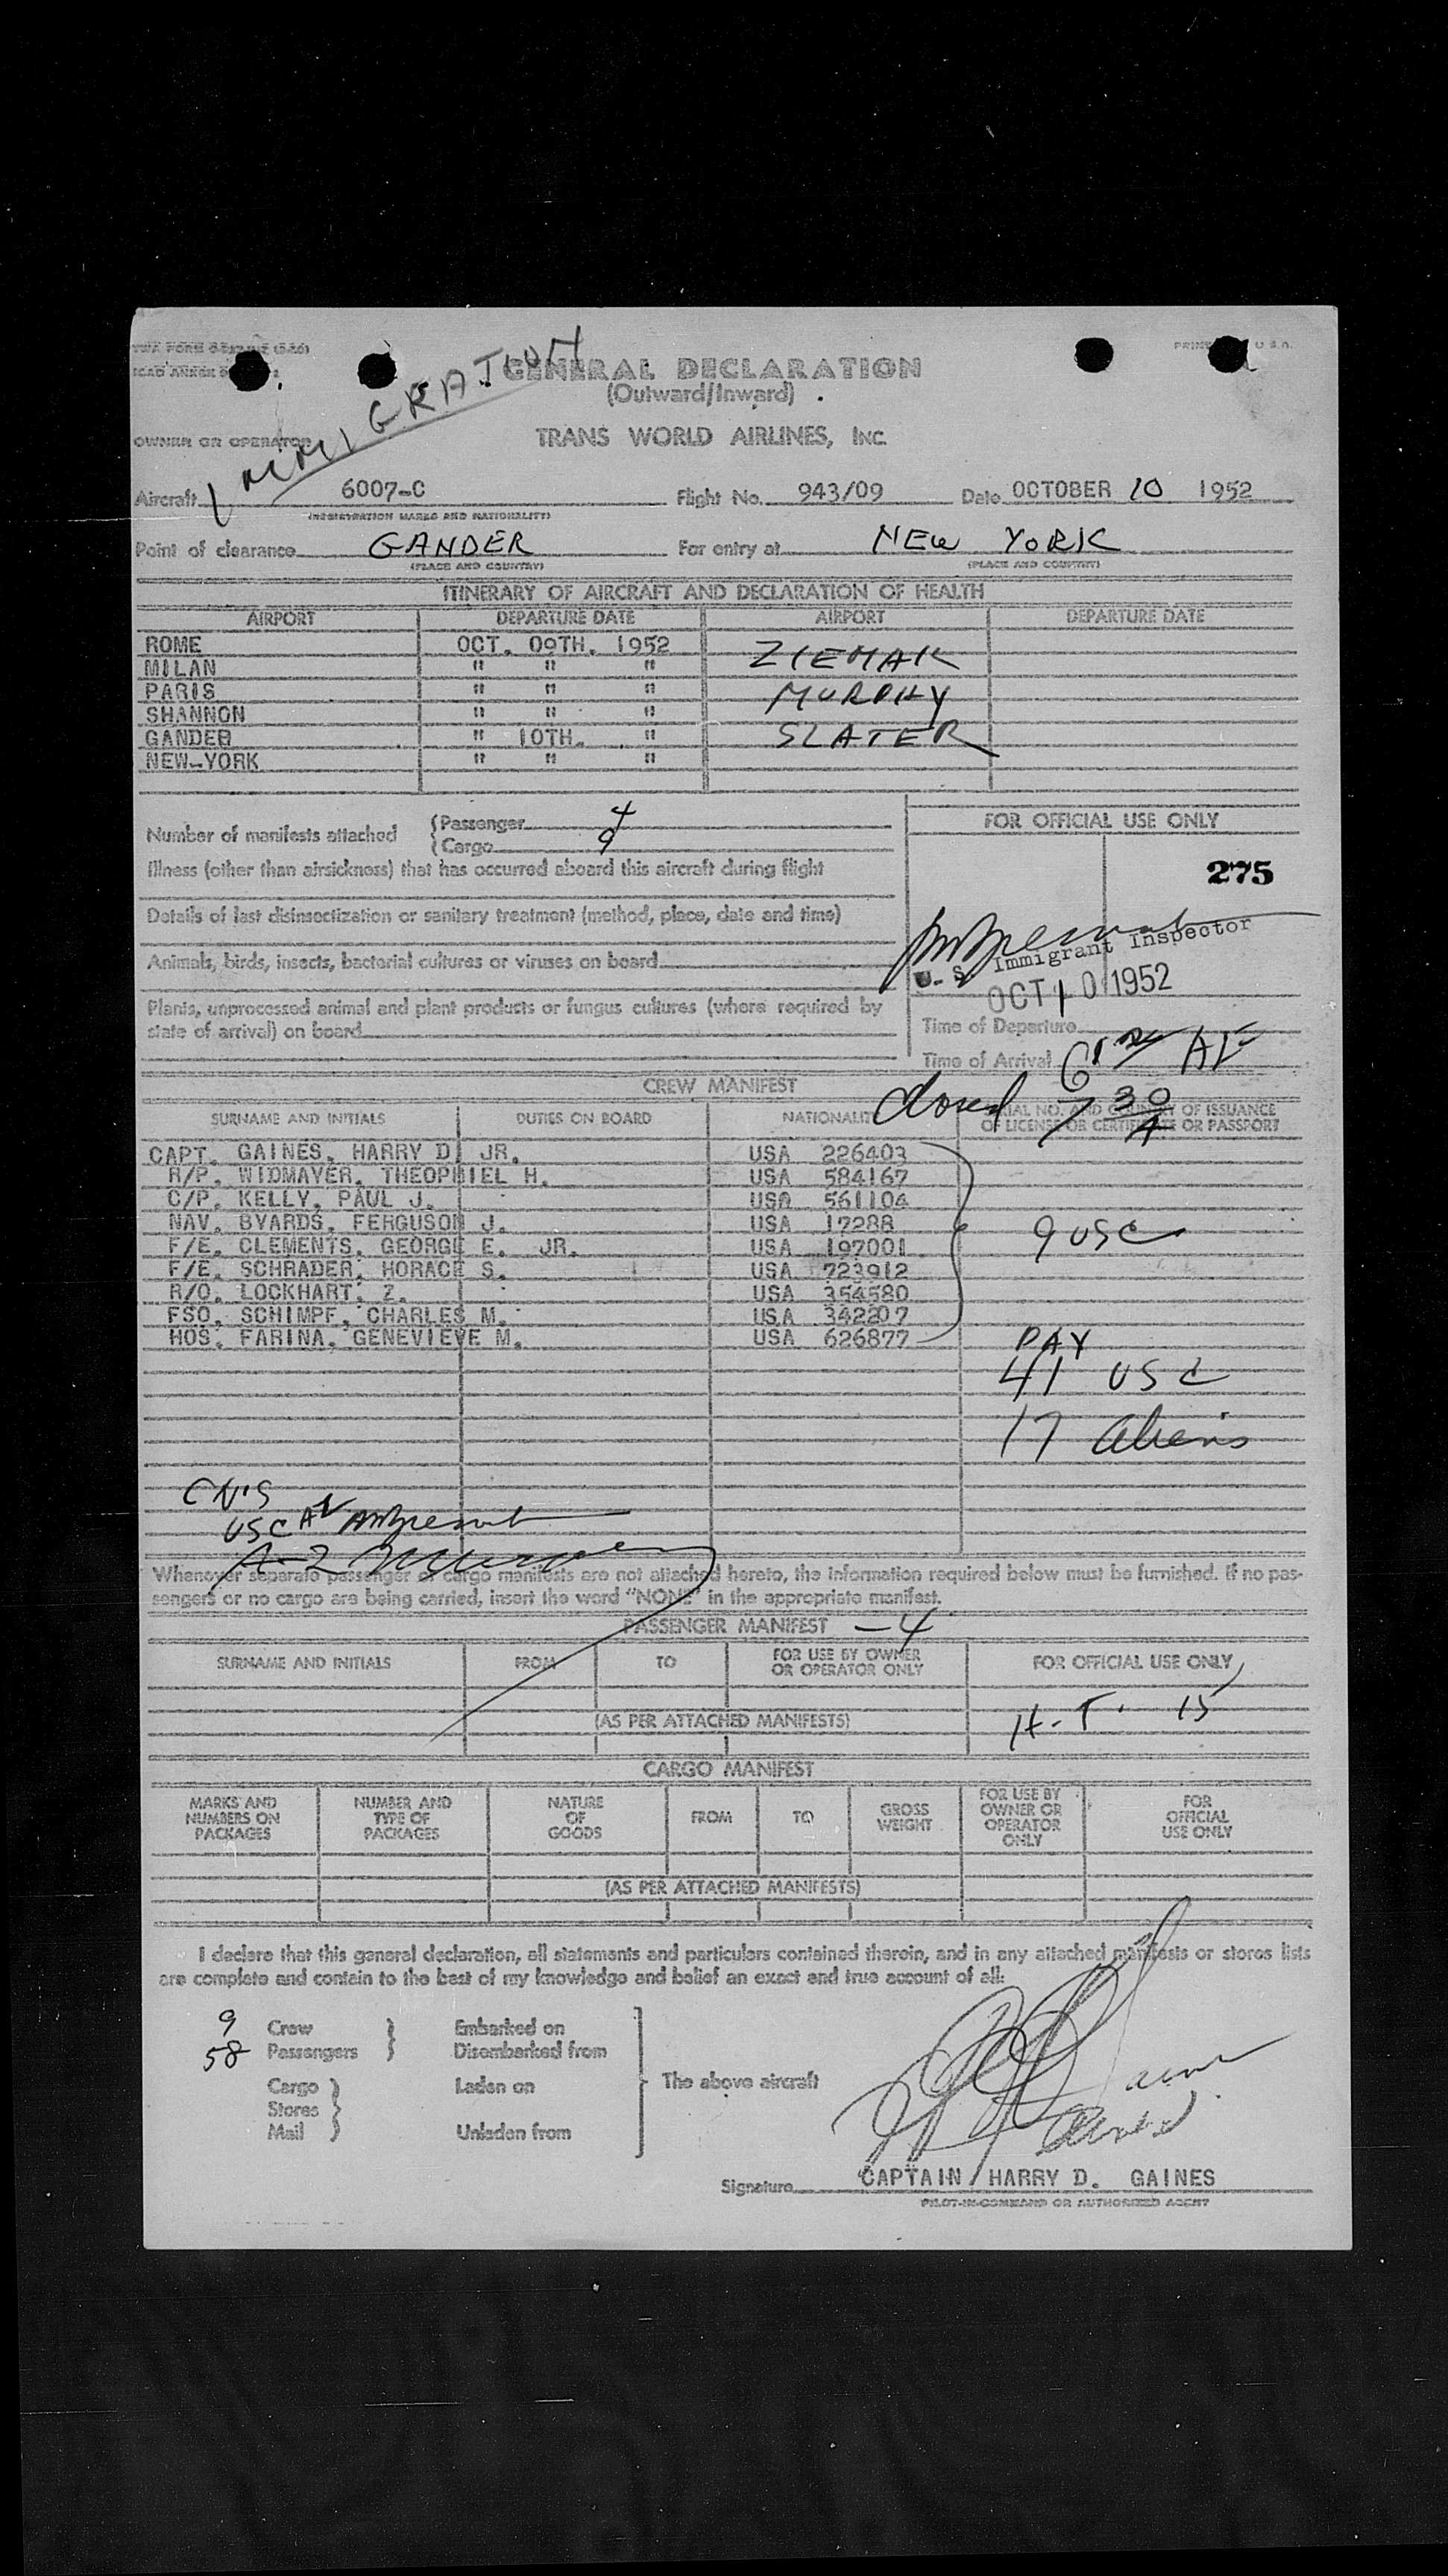 IMMIGRATION
GENERAL DECLARATION
(Outward/Inward)
OWNER OR OPERATOR TRANS WORLD AIRLINES, INC.
Aircraft 6007-C Flight No. 943/09 Date OCTOBER 10 1952
(REGISTRATION MARKS AND NATIONALITY)
Point of clearance GANDER For entry at NEW YORK
(PLACE AND COUNTRY) (PLACE AND COUNTRY)
ITINERARY OF AIRCRAFT AND DECLARATION OF HEALTH
AIRPORT DEPARTURE DATE AIRPORT DEPARTURE DATE
ROME OCT. 09TH. 1952 ZIEMAK
MILAN " " "
PARIS " " " MURPHY
SHANNON " " "
GANDER " 10TH. " SLATER
NEW-YORK " " "
Number of manifests attached {Passenger 4
{Cargo 9
FOR OFFICIAL USE ONLY
275
Illness (other than airsickness) that has occurred aboard this aircraft during flight
Details of last disinsectization or sanitary treatment (method, place, date and time)
Animals, birds, insects, bacterial cultures or viruses on board
U. S. Immigrant Inspector
OCT 10 1952
Plants, unprocessed animal and plant products or fungus cultures (where required by
state of arrival) on board
Time of Departure
Time of Arrival
CREW MANIFEST closed 7 30 A
SURNAME AND INITIALS DUTIES ON BOARD NATIONALITY SERIAL NO. AND COUNTRY OF ISSUANCE
OF LICENSE OR CERTIFICATE OR PASSPORT
CAPT. GAINES, HARRY D. JR. USA 226403
R/P. WIDMAYER, THEOPHIEL H. USA 584167
C/P. KELLY, PAUL J. USA 561104
NAV. BYARDS, FERGUSON J. USA 17288
F/E. CLEMENTS, GEORGE E. JR. USA 197001
F/E. SCHRADER, HORACE S. USA 723912
R/O. LOCKHART, Z. USA 354580
FSO. SCHIMPF, CHARLES M. USA 342207
HOS. FARINA, GENEVIEVE M. USA 626877
9 USC
PAX
41 USC
17 Aliens
CN'S
USC
A-2
Whenever separate passenger or cargo manifests are not attached hereto, the information required below must be furnished. If no pas-
sengers or no cargo are being carried, insert the word "NONE" in the appropriate manifest.
PASSENGER MANIFEST -4
SURNAME AND INITIALS FROM TO FOR USE BY OWNER
OR OPERATOR ONLY FOR OFFICIAL USE ONLY
(AS PER ATTACHED MANIFESTS) H.T. 15
CARGO MANIFEST
MARKS AND
NUMBERS ON
PACKAGES
NUMBER AND
TYPE OF
PACKAGES
NATURE
OF
GOODS
FROM
TO
GROSS
WEIGHT
FOR USE BY
OWNER OR
OPERATOR
ONLY
FOR
OFFICIAL
USE ONLY
(AS PER ATTACHED MANIFESTS)
I declare that this general declaration, all statements and particulars contained therein, and in any attached manifests or stores lists
are complete and contain to the best of my knowledge and belief an exact and true account of all:
9 Crew } Embarked on
58 Passengers } Disembarked from
Cargo } Laden on
Stores }
Mail } Unladen from
The above aircraft
Signature CAPTAIN HARRY D. GAINES
PILOT-IN-COMMAND OR AUTHORIZED AGENT